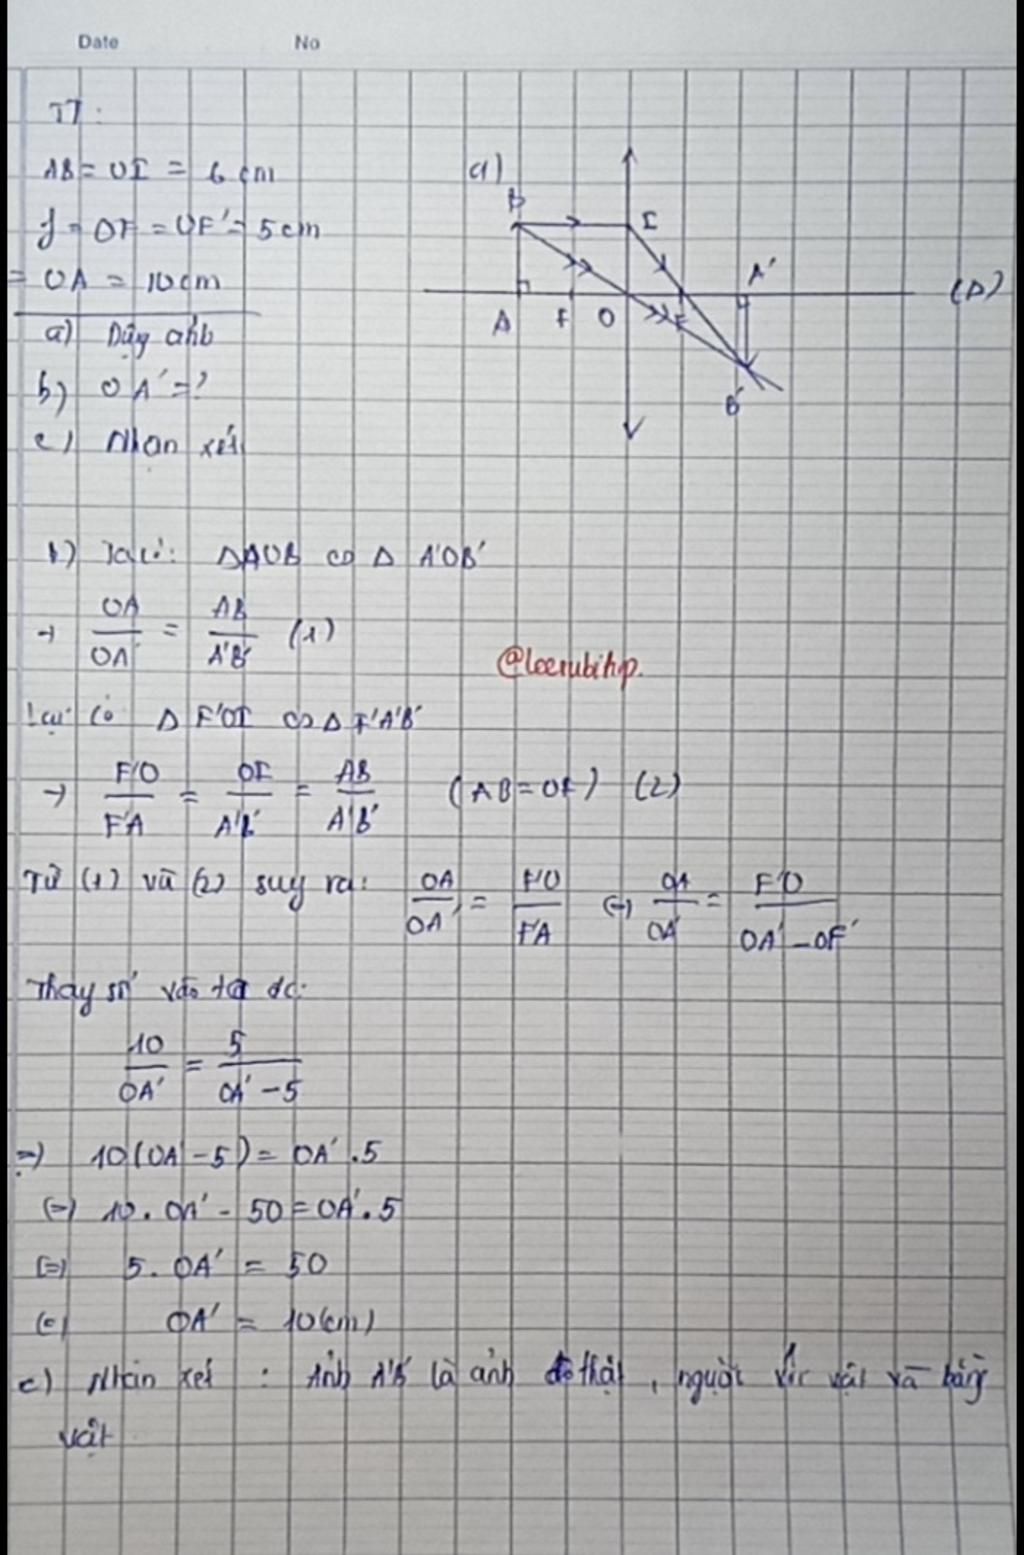 Date No
TT:
AB = OI = 6 cm
f = OF = OF' = 5 cm
= OA = 10 cm
a) Dựng ảnh
b) OA' = ?
c) Nhận xét
a)
B I A' (Δ)
A F O F'
B'
b) Ta có: ΔAOB ∽ Δ A'OB'
→ OA/OA' = AB/A'B' (1)
@leerubihp.
Lại có Δ F'OI ∽ Δ F'A'B'
→ F'O/F'A' = OI/A'B' = AB/A'B' (AB = OI) (2)
Từ (1) và (2) suy ra: OA/OA' = F'O/F'A' (=) OA/OA' = F'O/OA' - OF'
Thay số vào ta dc:
10/OA' = 5/OA' - 5
=) 10(OA' - 5) = OA'.5
(=) 10. OA' - 50 = OA'.5
(=) 5. OA' = 50
(=) OA' = 10(cm)
c) Nhận xét : Ảnh A'B' là ảnh thật, ngược với vật và bằng
vật